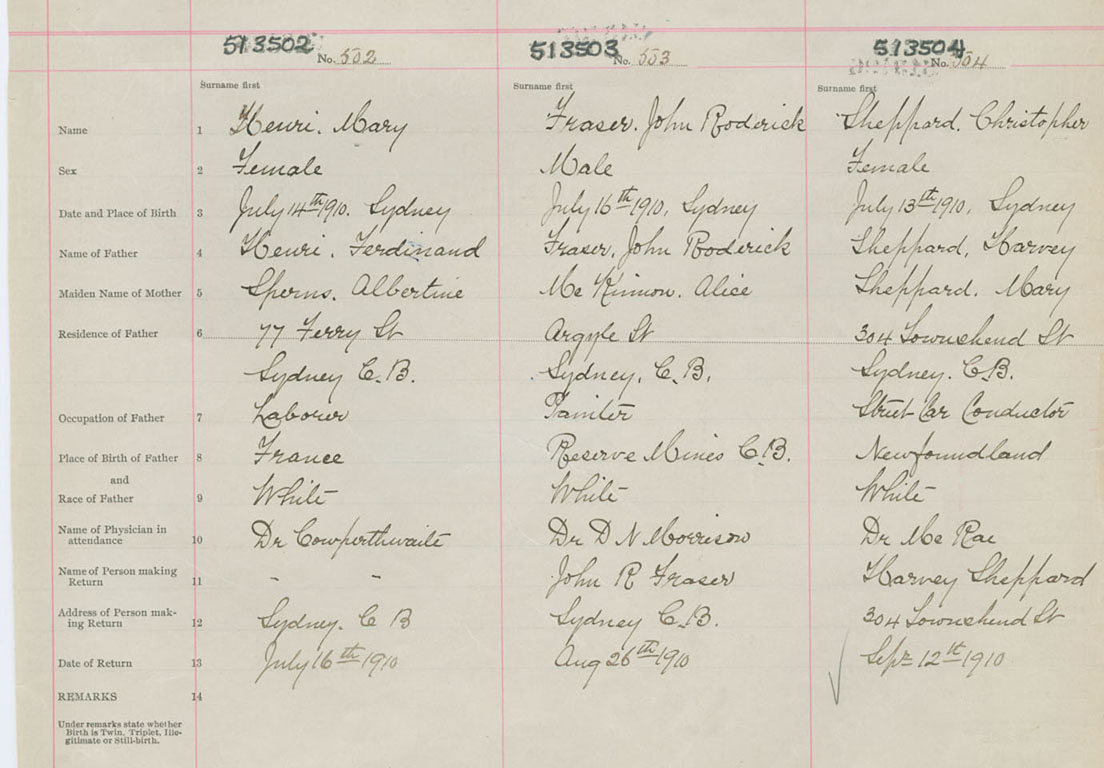 513502 513503 513504
No. 502 No. 553 No. 504
Surname first Surname first Surname first
Name 1 Henri. Mary Fraser. John Roderick Sheppard. Christopher
Sex 2 Female Male Female
Date and Place of Birth 3 July 14th 1910. Sydney July 16th 1910, Sydney July 13st 1910, Sydney
Name of Father 4 Henri. Ferdinand Fraser, John Roderick Sheppard, Harvey
Maiden Name of Mother 5 Sperns. Albertine Mc Kinnon. Alice Sheppard. Mary
Residence of Father 6 77 Ferry St Argyle St 304 Townshend St
Sydney C.B. Sydney, C.B. Sydney. C.B.
Occupation of Father 7 Laborer Painter Street Car Conductor
Place of Birth of Father 8 France Reserve Mines C.B. Newfoundland
and
Race of Father 9 White White White
Name of Physician in
attendance 10 Dr Cowperthwaite Dr D N Morrison Dr Mc Rae
Name of Person making
Return 11 " " John R Fraser Harvey Sheppard
Address of Person mak-
ing Return 12 Sydney. C B Sydney C.B. 304 Townshend St
Date of Return 13 July 16th 1910 Aug 26th 1910 Sept 12th 1910
REMARKS 14
Under remarks state whether
Birth is Twin, Triplet, Ille-
gitimate or Still-birth.